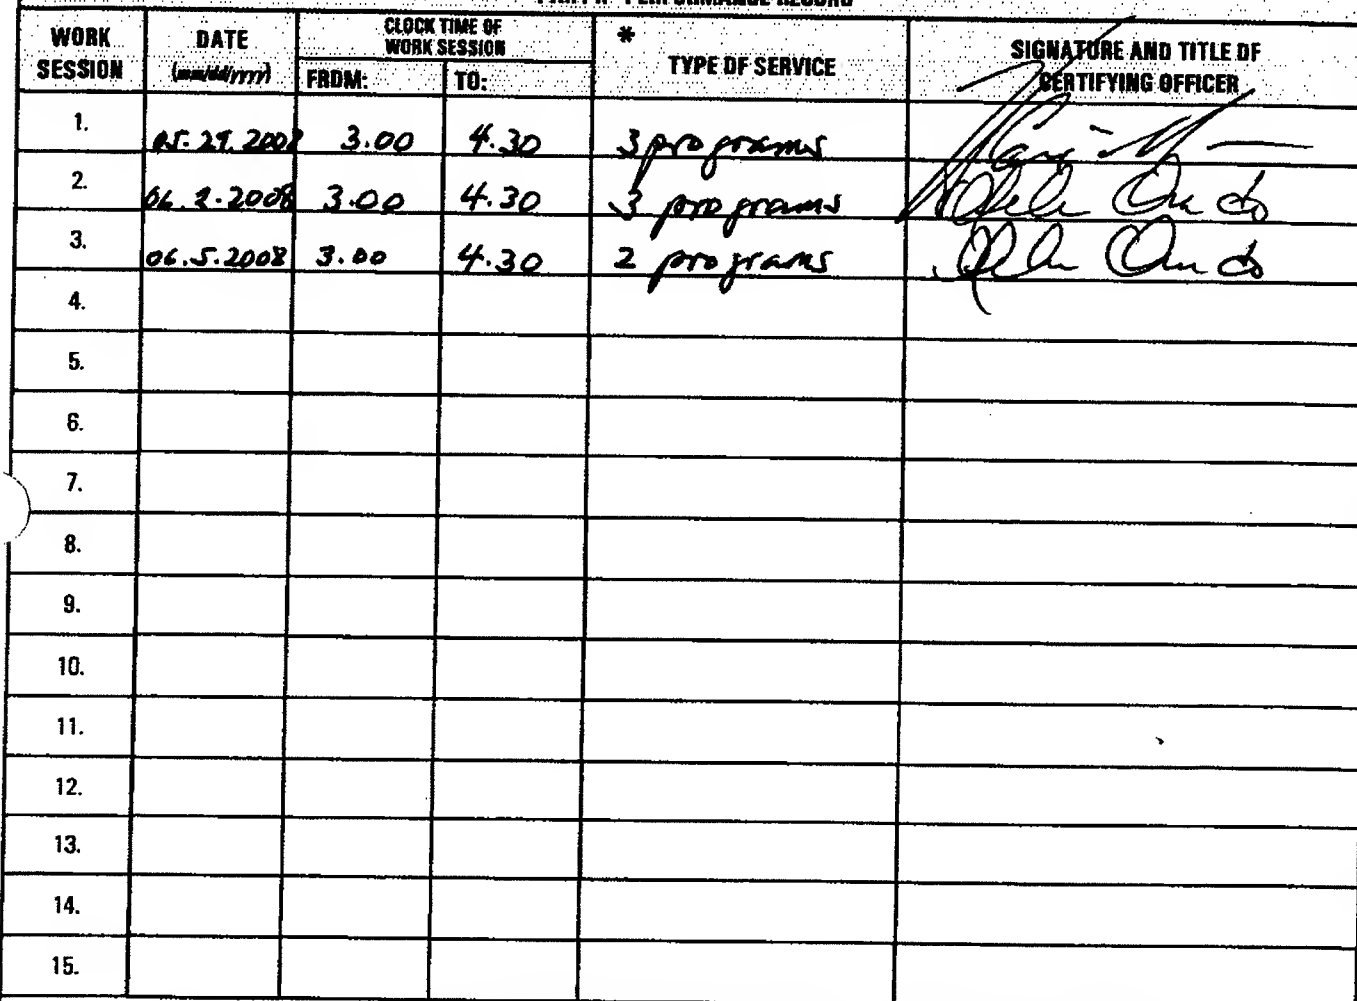 PERFORMANCE RECORD
WORK SESSION DATE (mm/dd/yyyy) CLOCK TIME OF WORK SESSION FROM: TO: * TYPE OF SERVICE SIGNATURE AND TITLE OF CERTIFYING OFFICER
1. 05.29.2008 3.00 4.30 3 programs
2. 06.2.2008 3.00 4.30 3 programs
3. 06.5.2008 3.00 4.30 2 programs
4.
5.
6.
7.
8.
9.
10.
11.
12.
13.
14.
15.